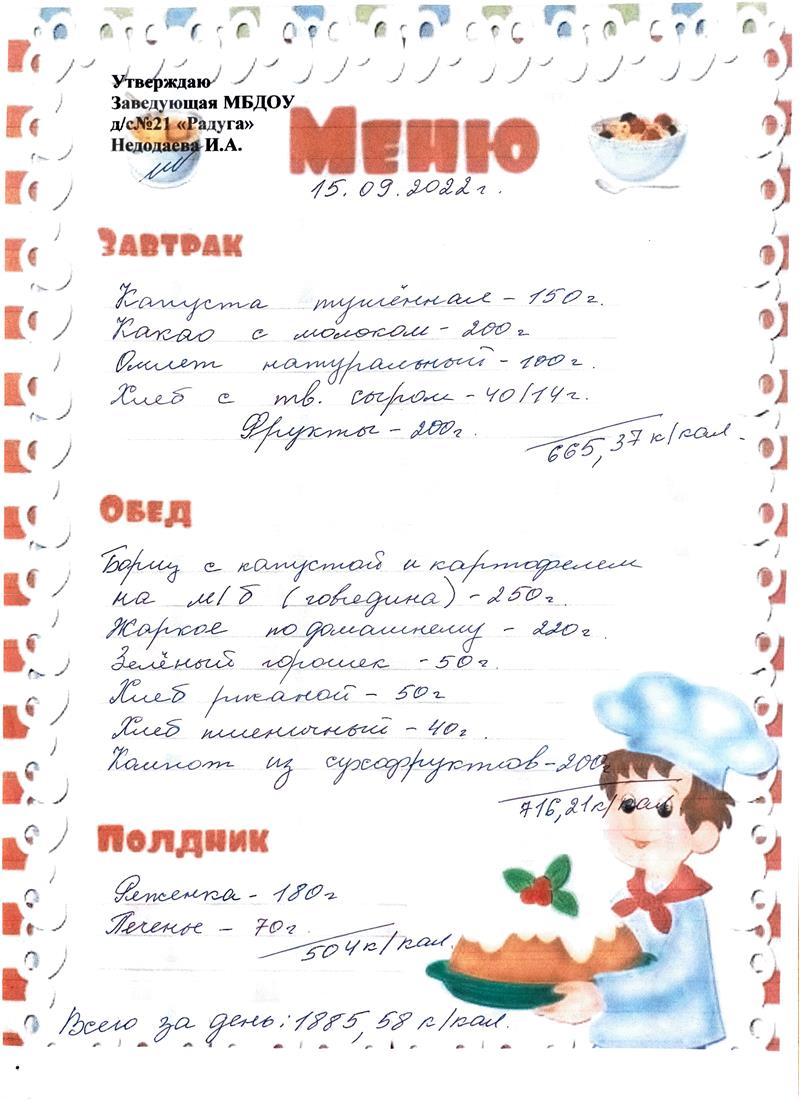 Утверждаю
Заведующая МБДОУ
д/с№21 «Радуга»
Недодаева И.А.
Меню
15.09.2022г.
Завтрак
Капуста тушённая - 150г.
Какао с молоком - 200г
Омлет натуральный - 100г.
Хлеб с тв. сыром - 40/14г.
Фрукты - 200г.
665,37 к/кал.
Обед
Борщ с капустой и картофелем
на м/б (говядина) - 250г.
Жаркое по домашнему - 220г.
Зелёный горошек - 50г.
Хлеб ржаной - 50г
Хлеб пшеничный - 40г.
Компот из сухофруктов - 200г
716,21к/кал.
Полдник
Ряженка - 180г
Печенье - 70г.
504к/кал.
Всего за день: 1885,58 к/кал.